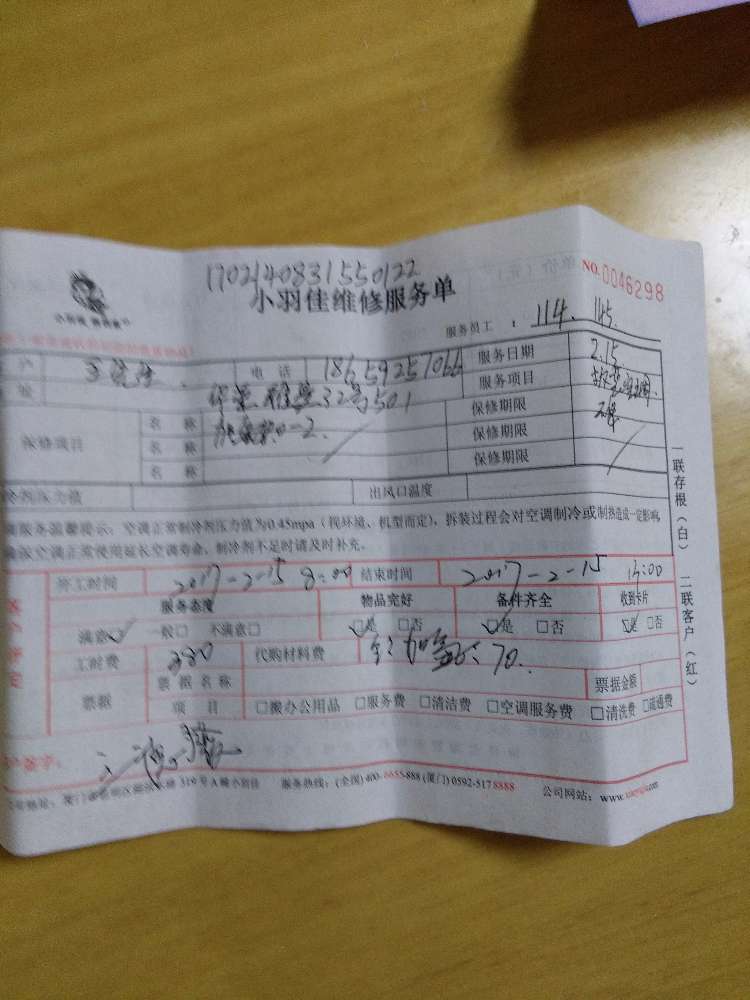 1702140831550122
NO.0046298
小羽佳维修服务单
服务员工：114. 115.
电话 18659257066 服务日期 2.15
服务项目
32号501
保修项目 名称 保修期限
名称 保修期限
名称 保修期限
冷剂压力值 出风口温度
调服务温馨提示：空调正常制冷剂压力值为0.45mpa（视环境、机型而定），拆装过程会对空调制冷或制热造成一定影响
确保空调正常使用延长空调寿命，制冷剂不足时请及时补充。
开工时间 2017-2-15 8:00 结束时间 2017-2-15
服务态度 物品完好 备件齐全 收到卡片
满意☑ 一般□ 不满意□ ☑是 □否 ☑是 □否 ☑是 □否
工时费 380 代购材料费 70.
票据 票据名称 票据金额
项目 □搬办公用品 □服务费 □清洁费 □空调服务费 □清洗费 □疏通费
签字：
319号A幢小羽佳 服务热线：(全国)400-6655-888 (厦门)0592-5178888 公司网站：www.xiaoyujia.com
一联存根（白） 二联客户（红）